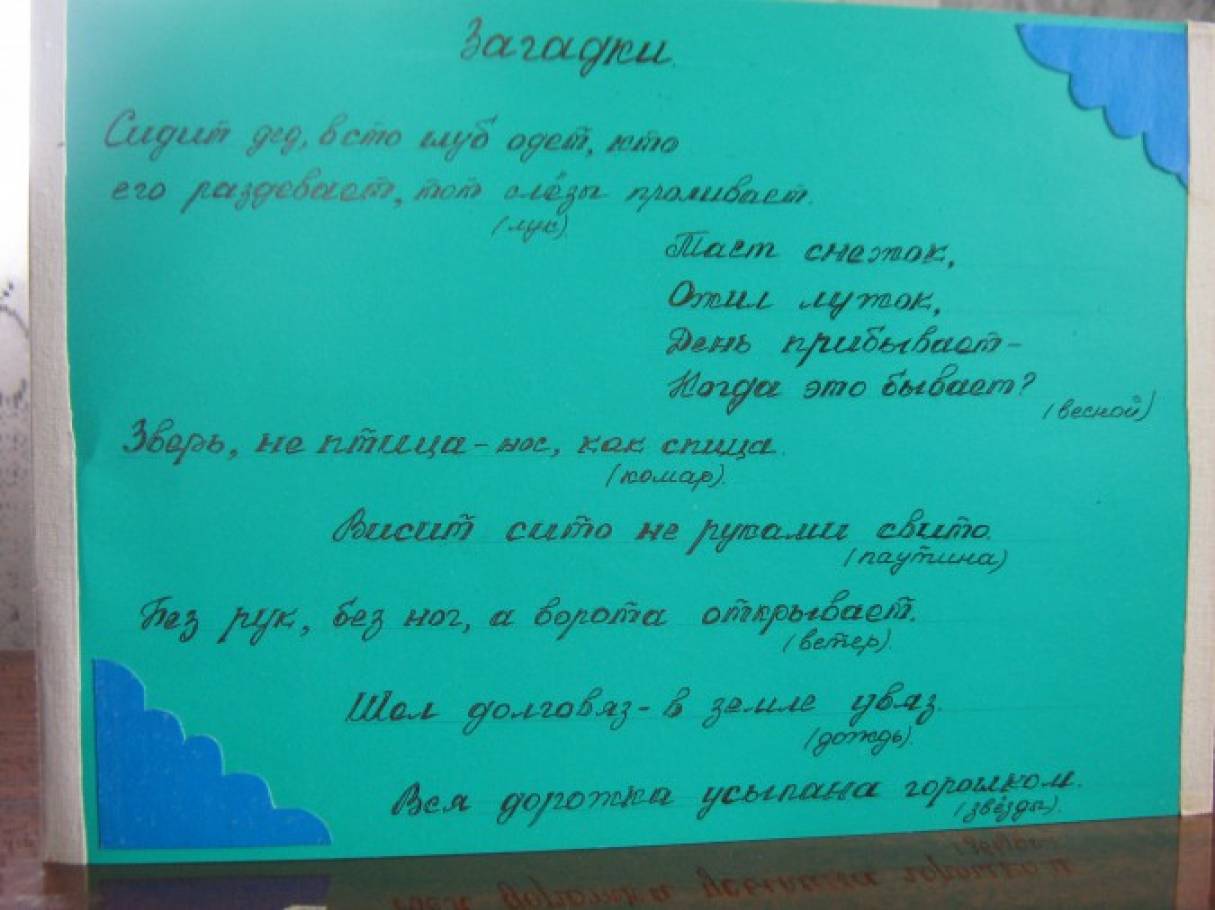 Загадки.
Сидит дед, в сто шуб одет, кто
его раздевает, тот слёзы проливает.
(лук).
Тает снежок,
Ожил лужок,
День прибывает-
Когда это бывает?
(весной)
Зверь, не птица - нос, как спица.
(комар).
Висит сито не руками свито.
(паутина)
Без рук, без ног, а ворота открывает.
(ветер).
Шел долговяз - в земле увяз.
(дождь).
Вся дорожка усыпана горошком.
(звёзды).